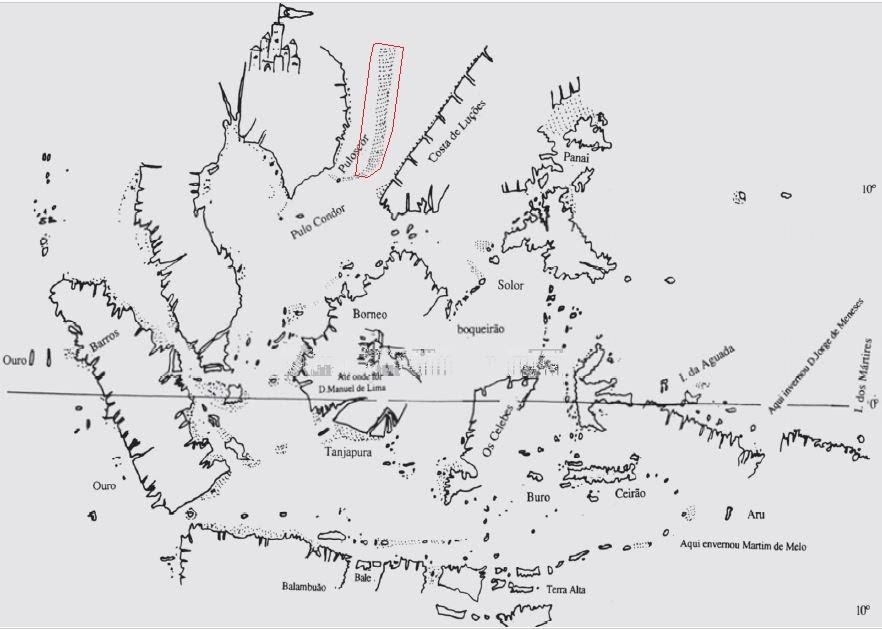 Puloscor
Costa de Luções
Panai
10º
Pulo Condor
Solor
Borneo
boqueirão
Barros
Ouro
Até onde foi
D. Manuel de Lima
I. da Aguada
Aqui invernou D. Jorge de Meneses
I. dos Mártires
0º
Os Celebes
Tanjapura
Ouro
Buro
Ceirão
Aru
Aqui envernou Martim de Melo
Balambuão
Bale
Terra Alta
10º